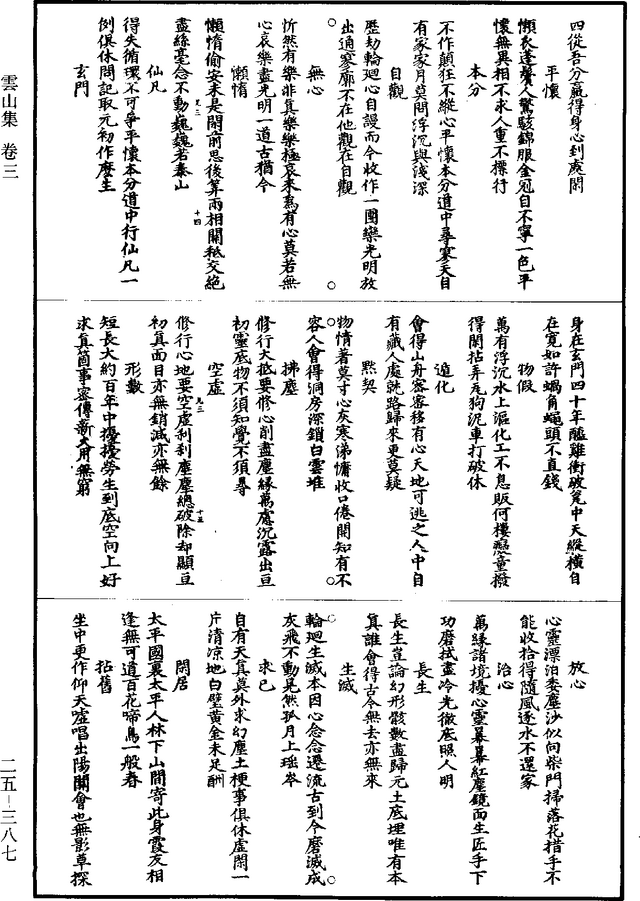 四從吾分贏得身心到處閑
平懷
懶衣蓬鬢人驚駭錦服金冠自不寧一色平
懷無異相不求人重不摽行
本分
不作顛狂不縱心平懷本分道中尋寥天自
有家家月莫問浮沉與淺深
自觀
歷劫輪廻心自謾而今收作一團欒光明放
出通寥廓不在他觀在自觀
無心
忻然有樂非真樂樂極哀來為有心莫若無
心哀樂盡光明一道古猶今
懶惰
懶惰偷安未是閑前思後筭兩相關秖交絶
盡絲毫念不動巍巍若泰山
仙凡
得失循環不可爭平懷本分道中行仙凡一
例俱休問記取元初作麼生
玄門
身在玄門四十年醯雞衝破瓮中天縱橫自
在寬如許蝸角蠅頭不直錢
物假
萬有浮沉水上漚化工不息販何樓戀童撥
得閑拈弄瓦狗泥車打破休
遁化
會得山舟密密移有心天地可逃之人中自
有藏人處就路歸來更莫疑
默契
物情著莫寸心灰寒涕慵收口倦開知有不
容人會得洞房深鎖白雲堆
拂塵
修行大抵要修心削盡塵緣萬慮沉露出亘
初靈底物不須知覺不須尋
空虛
修行心地要空虛利刹塵塵總破除却顯亘
初真面目亦無銷減亦無餘
形數
短長大約百年中擾擾勞生到底空向上好
求真箇事密傳新大用無窮
放心
心靈漂泊委塵沙似向柴門掃落花措手不
能收拾得隨風逐水不還家
治心
萬緣諸境擾心靈羃羃紅塵鏡面生匠手下
功磨拭盡冷光徹底照人明
長生
長生豈論幻形骸數盡歸元土底埋唯有本
真誰會得古今無去亦無來
生滅
輪廻生滅本因心念念遷流古到今磨滅成
灰飛不動晃然孤月上瑤岑
求己
自有天真莫外求幻塵土梗事俱休虛閑一
片清凉地白璧黃金未足酬
閑居
太平國裏太平人林下山間寄此身霞友相
逢無可道百花啼鳥一般春
拈舊
坐中更作仰天噓唱出陽關會也無影草探
雲山集 卷三
二五-三八七